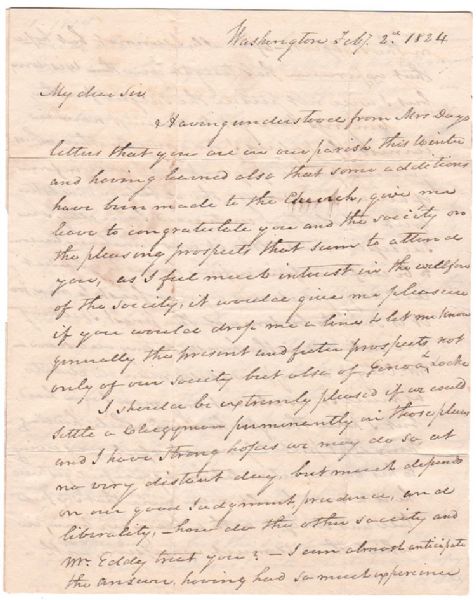 Washington Feby. 2d. 1824
My dear Sir
Having understood from Mrs Days
letters that you are in our parish this Winter
and having learned also that some additions
have been made to the Church, give me
leave to congratulate you and the society on
the pleasing prospects that seem to attend
you, as I feel much interest in the welfare
of the society, it would give me pleasure
if you would drop me a line to let me know
generally the present and future prospects not
only of our society but also of Genoa &
I should be extremely pleased if we could
settle a Clergyman permanently in those places
and I have strong hopes we may do so, at
no very distant day, but much depends
on our good Judgment, prudence, and
liberality, – how do the other society and
Mr. Eddy treat you? – I can almost anticipate
the answer, having had so much experience